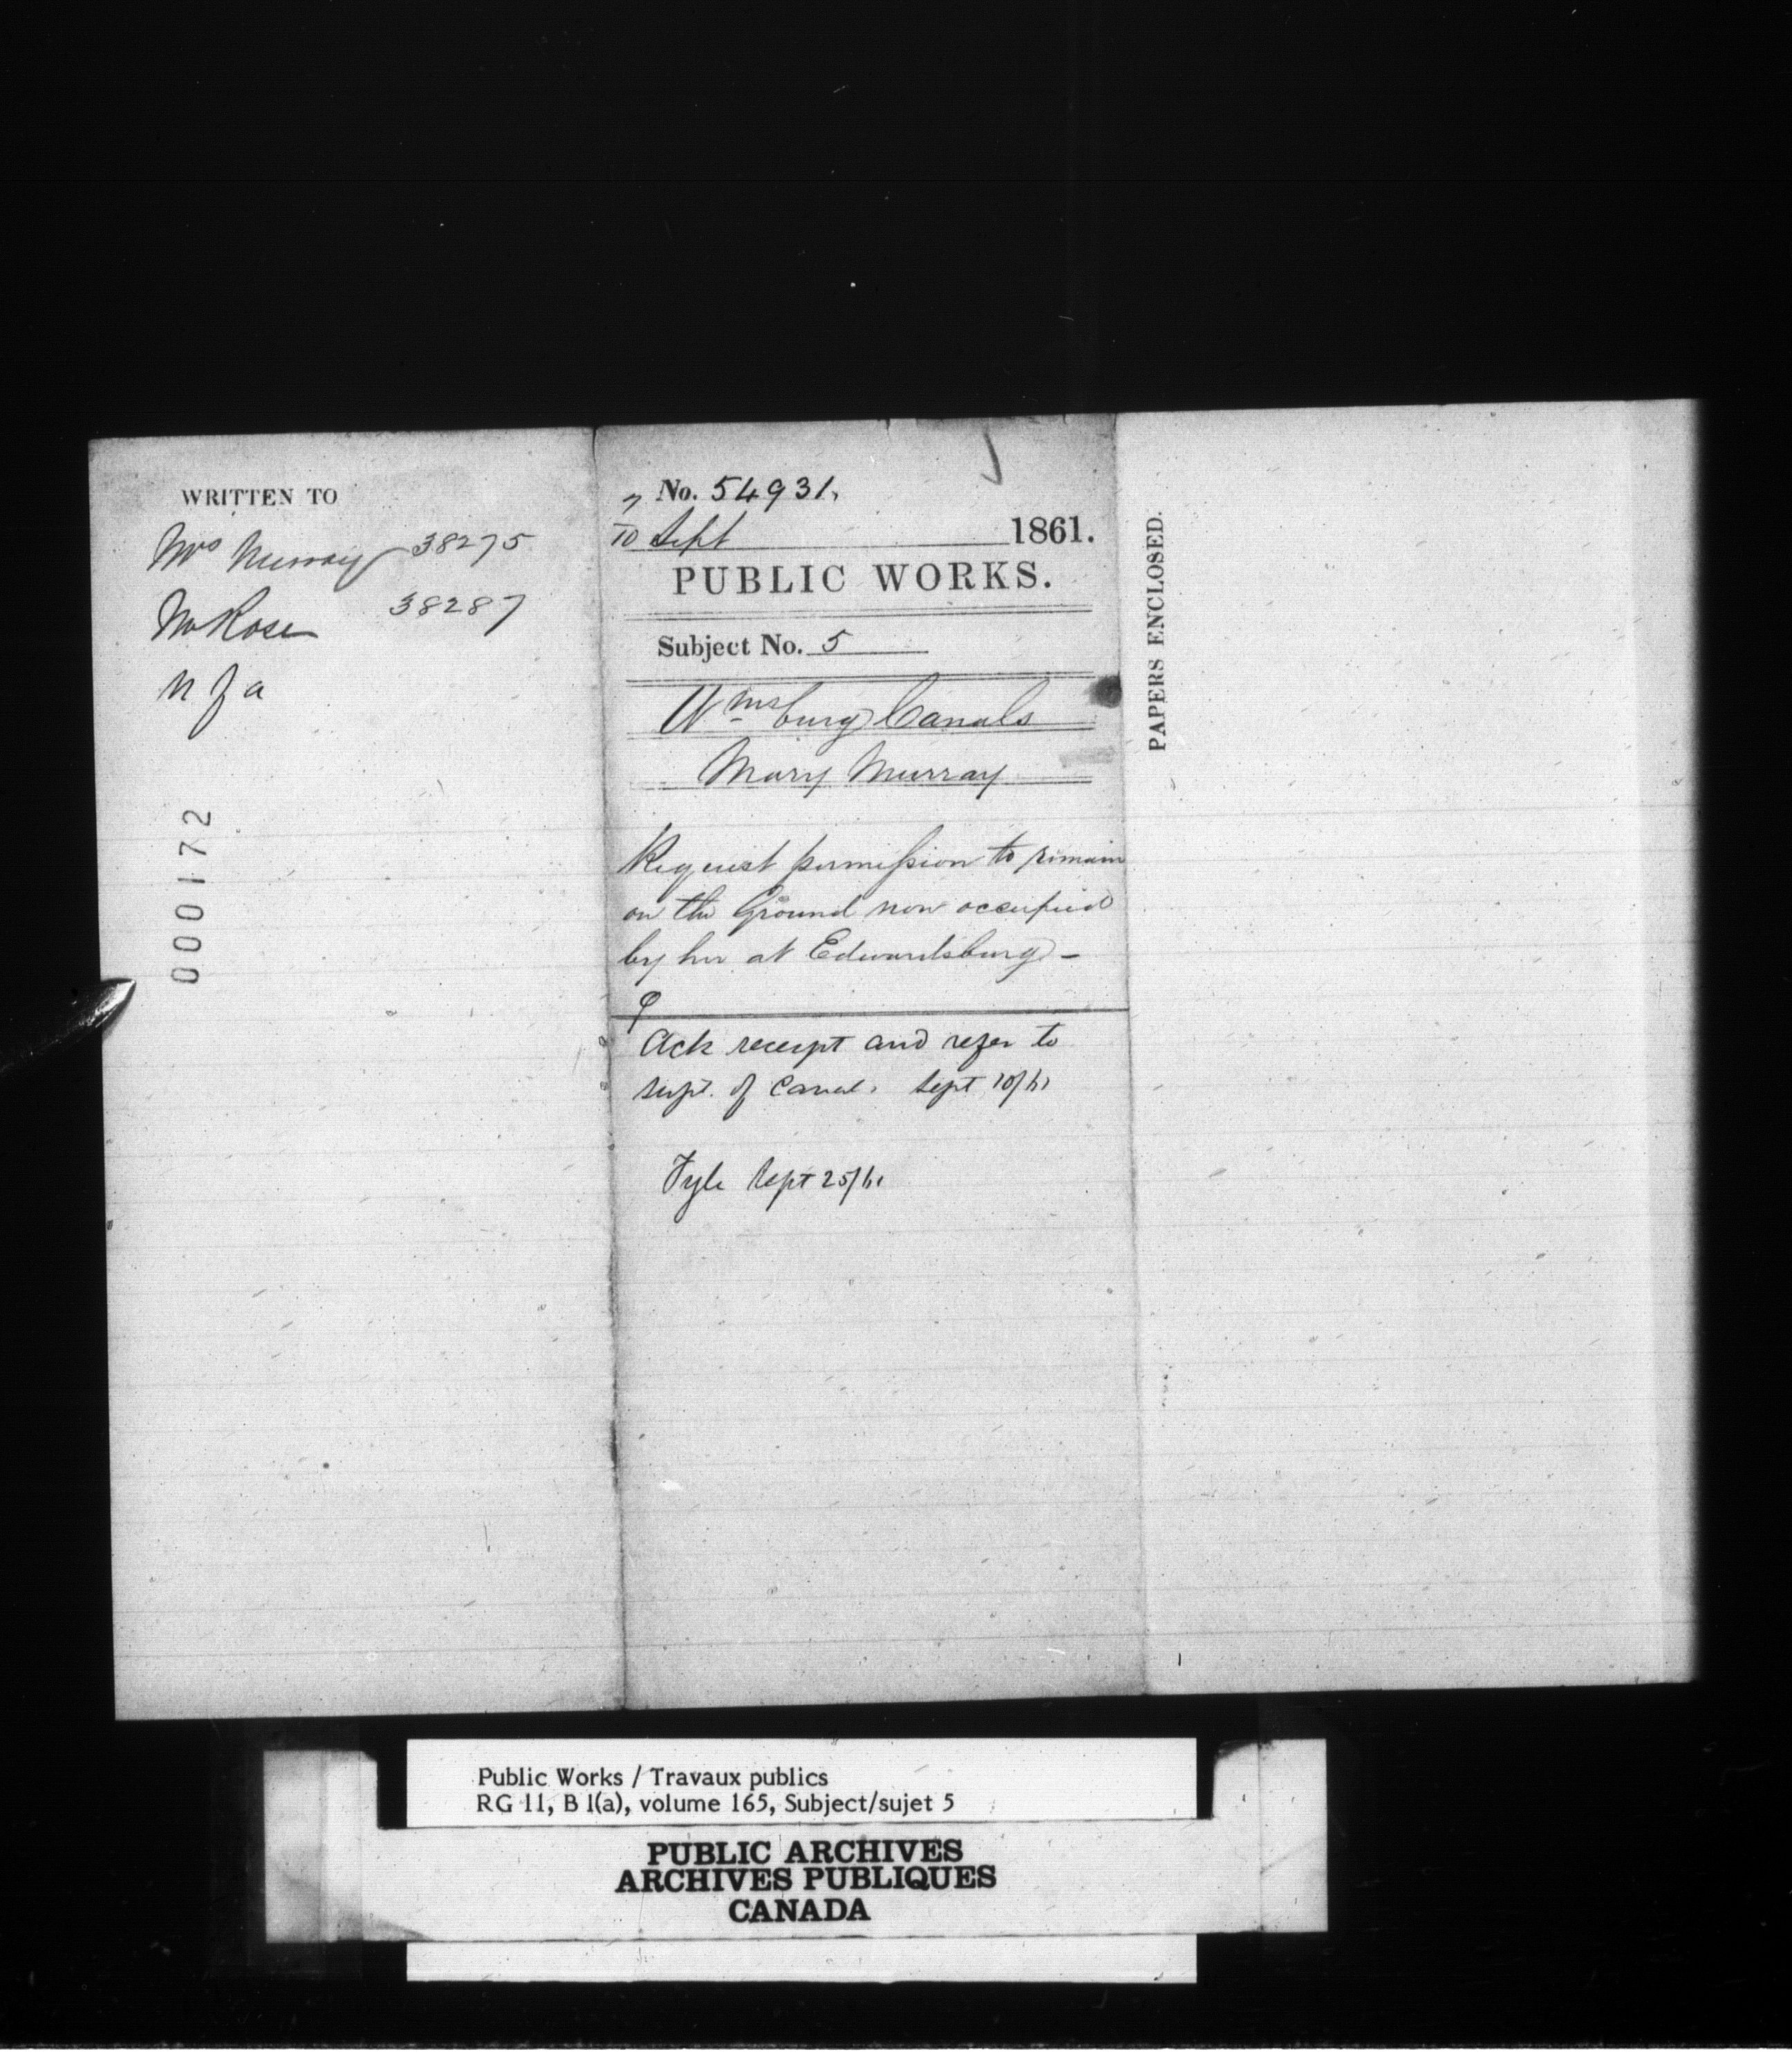 WRITTEN TO
Mrs Murray 38275
Mr Rose 38287
n f a
000172
No. 54931.
7
10 Sept 1861.
PUBLIC WORKS.
Subject No. 5
Wmsburg Canals
Mary Murray
Request permission to remain
on the Ground now occupied
by her at Edwardsburg -
Ack receipt and refer to
supt. of Canal. Sept 10/61
Fyle Sept 25/61
PAPERS ENCLOSED.
Public Works / Travaux publics
RG 11, B 1(a), volume 165, Subject/sujet 5
PUBLIC ARCHIVES
ARCHIVES PUBLIQUES
CANADA